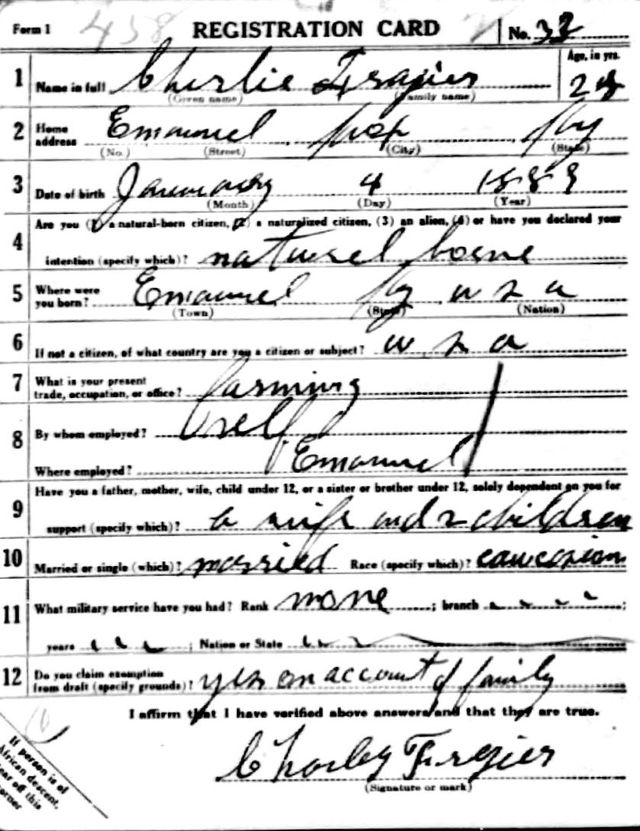 Form 1 458 REGISTRATION CARD No. 32
1 Name in full Cherlie Frazier Age, in yrs.
(Given name) (Family name) 28
2 Home address Emanuel Ky
(No.) (Street) (City) (State)
3 Date of birth January 4 1889
(Month) (Day) (Year)
4 Are you (1) a natural-born citizen, (2) a naturalized citizen, (3) an alien, (4) or have you declared your
intention (specify which)? naturel borne
5 Where were you born? Emanuel Ky u s a
(Town) (State) (Nation)
6 If not a citizen, of what country are you a citizen or subject? u s a
7 What is your present trade, occupation, or office? farming
8 By whom employed? self
Where employed? Emanuel
9 Have you a father, mother, wife, child under 12, or a sister or brother under 12, solely dependent on you for
support (specify which)? a wife and 2 children
10 Married or single (which)? married Race (specify which)? caucasian
11 What military service have you had? Rank none ; branch
years ; Nation or State
12 Do you claim exemption from draft (specify grounds)? yes on account of family
I affirm that I have verified above answers and that they are true.
Charley Frezier
(Signature or mark)
If person is of
African descent,
tear off this
corner